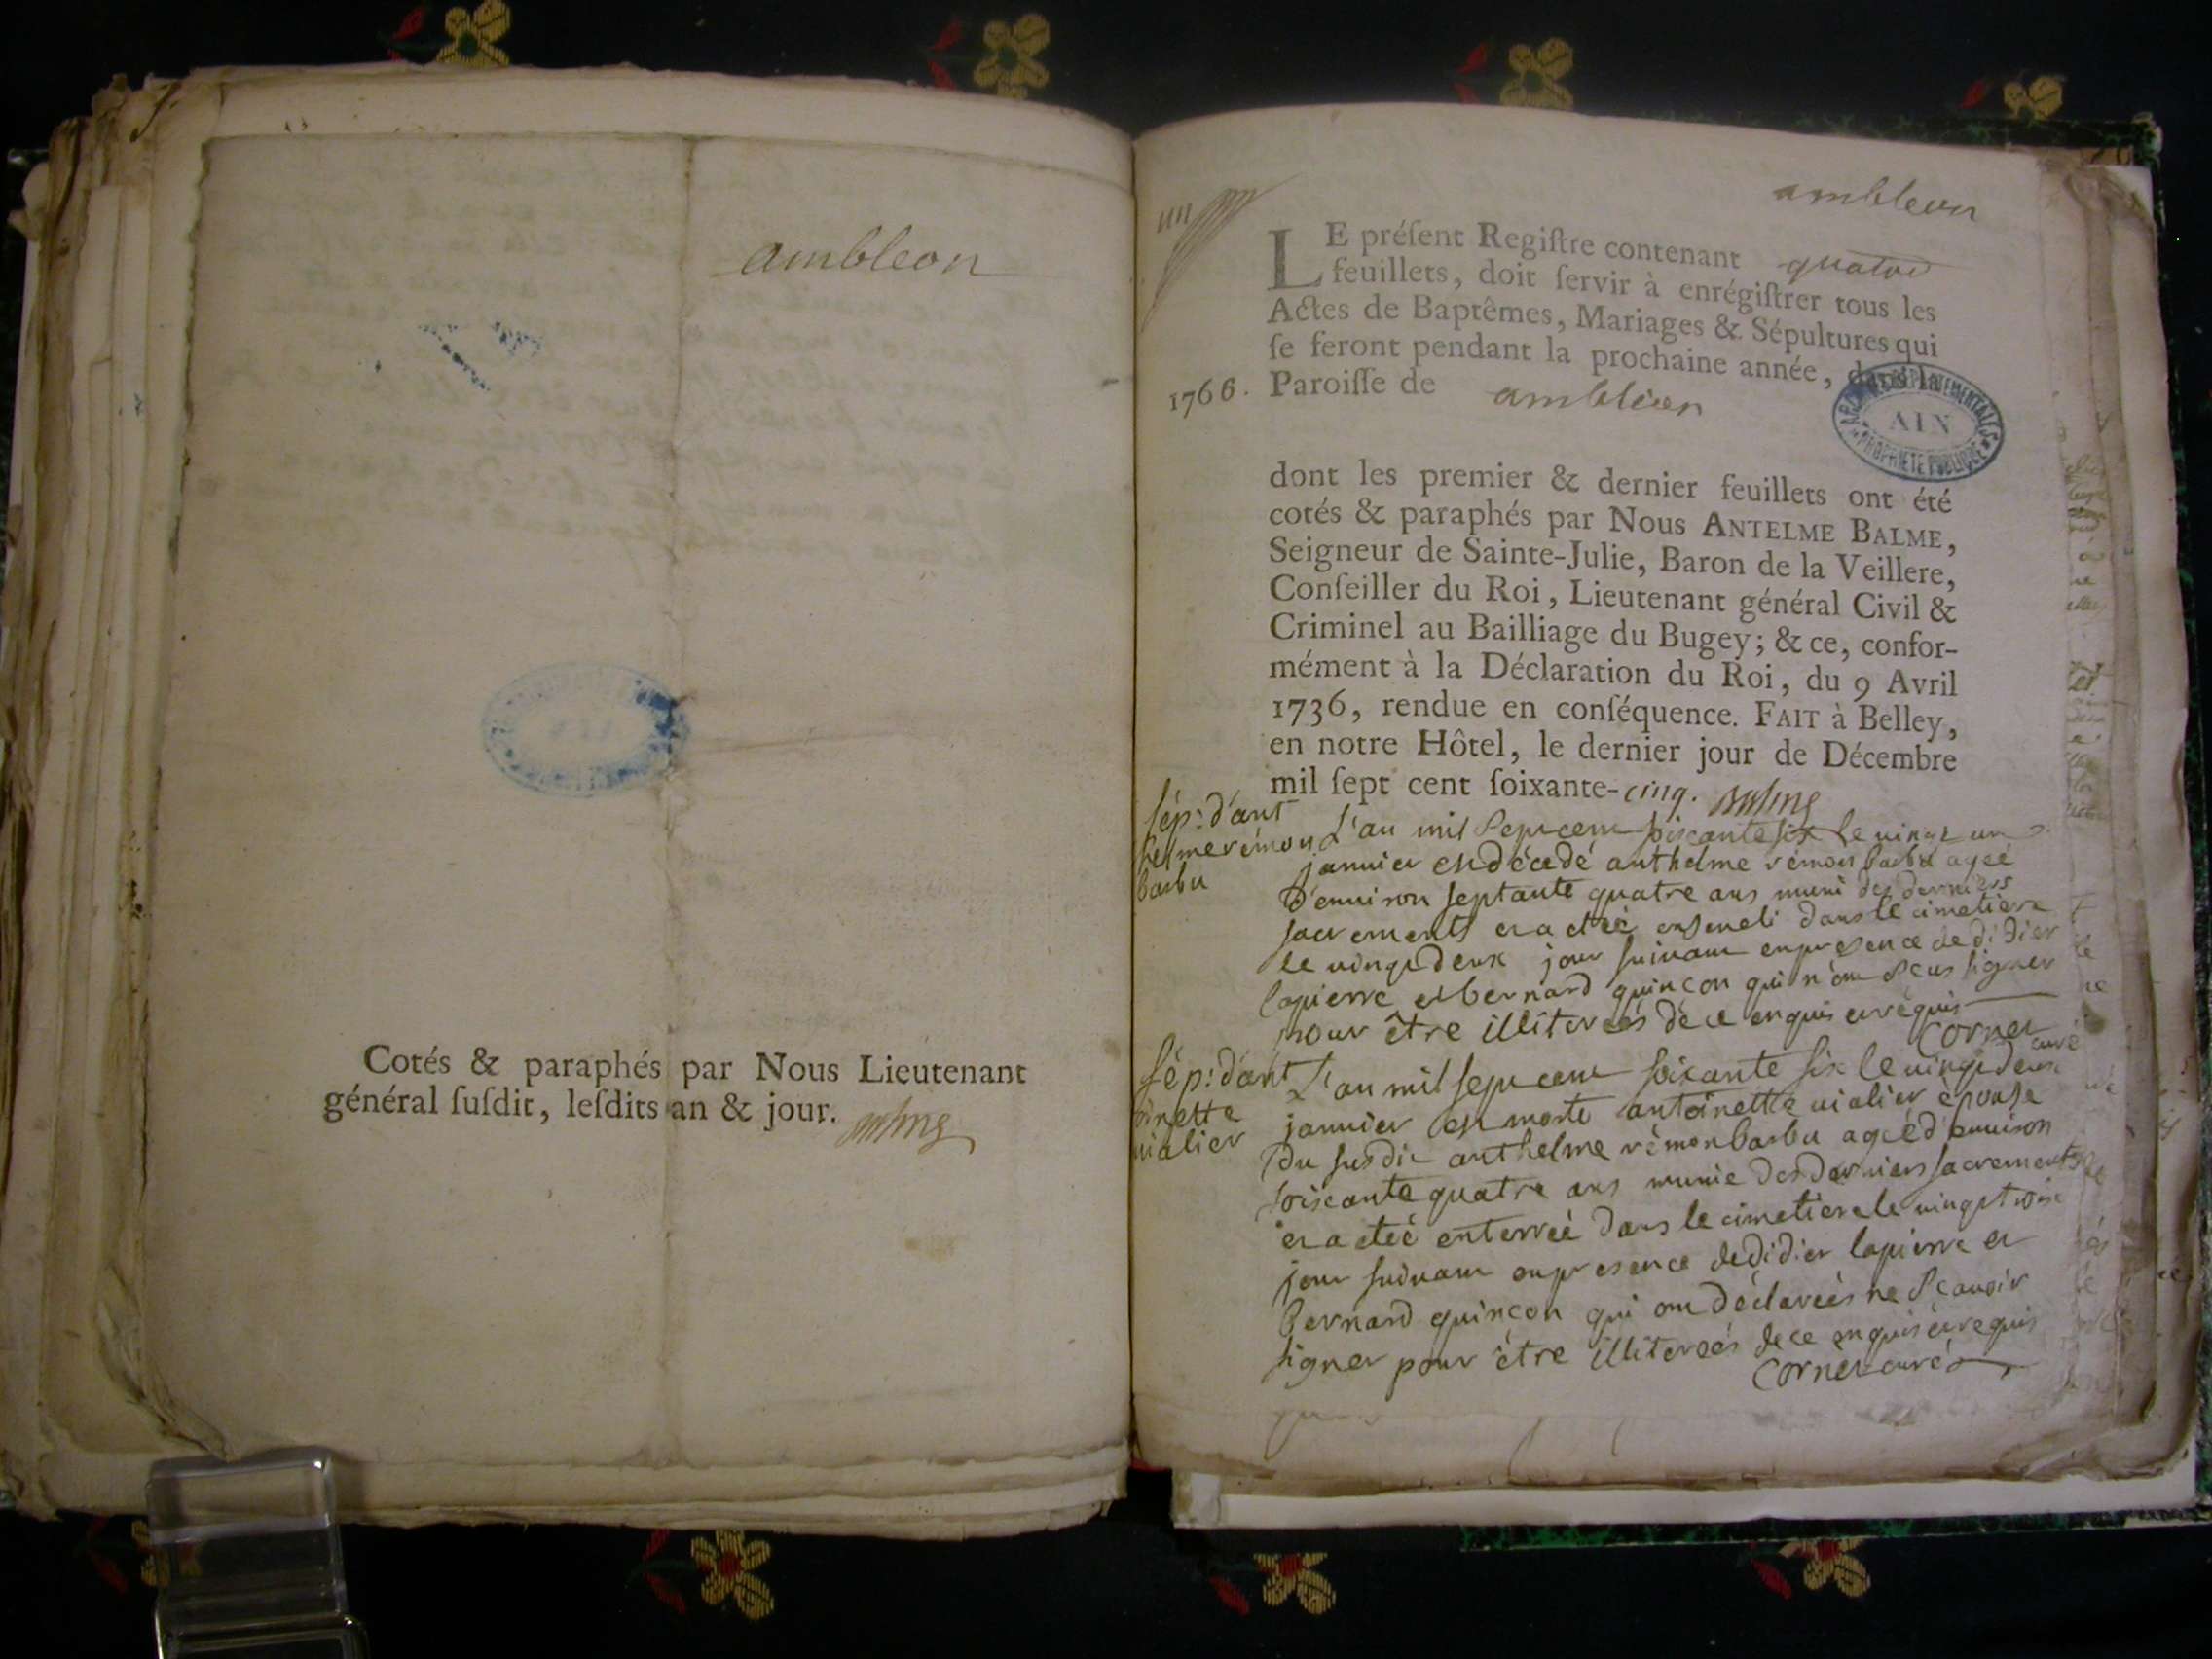 ambleon
Cotés & paraphés par Nous Lieutenant
général ſuſdit, leſdits an & jour.
ambleon
LE préſent Regiſtre contenant quatre
feuillets, doit ſervir à enrégiſtrer tous les
Actes de Baptêmes, Mariages & Sépultures qui
ſe feront pendant la prochaine année, dans la
1766. Paroiſſe de ambleon
ARCHIVES DÉPARTEMENTALES
AIN
PROPRIÉTÉ PUBLIQUE
dont les premier & dernier feuillets ont été
cotés & paraphés par Nous ANTELME BALME,
Seigneur de Sainte-Julie, Baron de la Veillere,
Conſeiller du Roi, Lieutenant général Civil &
Criminel au Bailliage du Bugey; & ce, confor-
mément à la Déclaration du Roi, du 9 Avril
1736, rendue en conſéquence. FAIT à Belley,
en notre Hôtel, le dernier jour de Décembre
mil ſept cent ſoixante-cinq.
sép: d'ant
helme rémon
barbu
L'an mil sept cent soixante six le vingt un
janvier est décédé anthelme rémon barbu ageé
d'environ septante quatre ans muni des derniers
sacrements et a eteé enseveli dans le cimetiere
le vingt deux jour suivant en presence de didier
lapierre et bernard quinçon qui n'ont sceus signer
pour être illitereés de ce enquis et réquis
Cornet curé
sép: d'ant
oinette
vialier
L'an mil sept cent soixante six le vingt deux
janvier est morte antoinette vialier épouse
du susdit anthelme rémon barbu ageé d'environ
soixante quatre ans munie des derniers sacrements
et a eteé enterreé dans le cimetiere le vingt trois
jour suivant en presence de didier lapierre et
bernard quinçon qui ont déclareés ne sçavoir
signer pour être illitereés de ce enquis et requis
Cornet curé